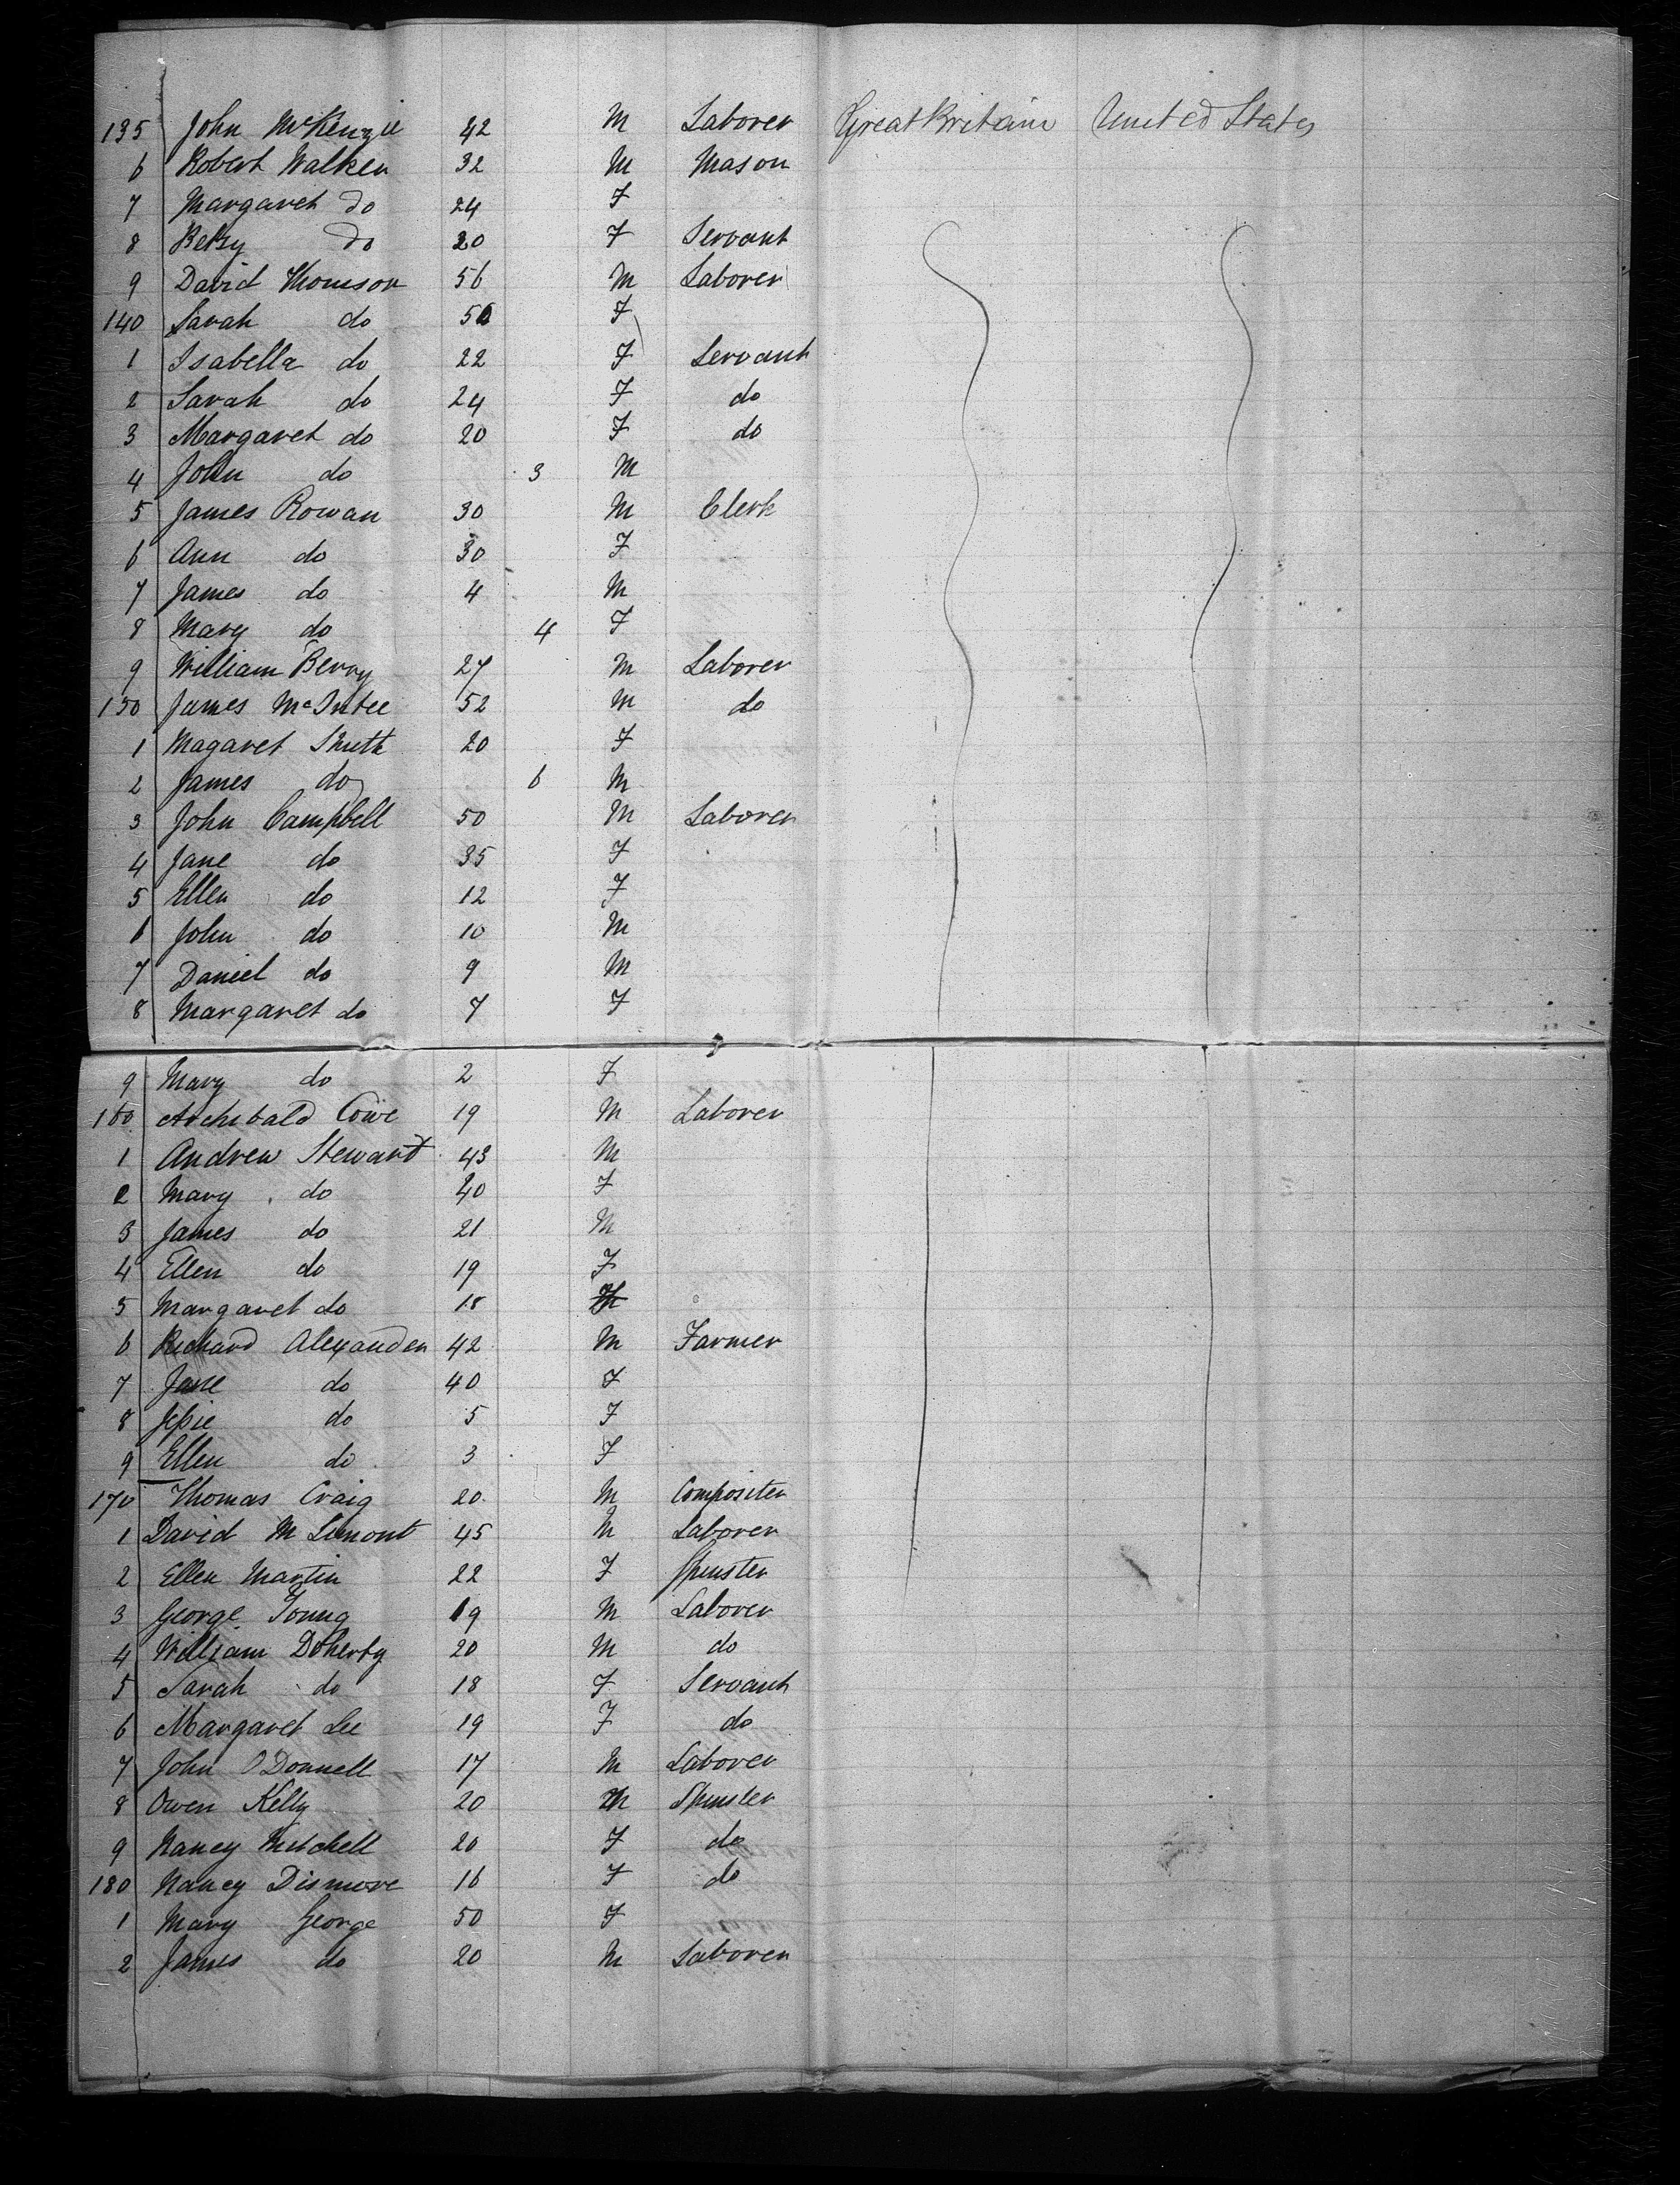 135 John McKenzie 42 M Laborer Great Britain United States
6 Robert Walker 32 M Mason
7 Margaret do 24 F
8 Betsy do 20 F Servant
9 David Thomson 56 M Laborer
140 Sarah do 56 F
1 Isabella do 22 F Servant
2 Sarah do 24 F do
3 Margaret do 20 F do
4 John do 3 M
5 James Rowan 30 M Clerk
6 Ann do 30 F
7 James do 4 M
8 Mary do 4 F
9 William Berry 27 M Laborer
150 James McIntee 52 M do
1 Magaret 20 F
2 James do 6 M
3 John Campbell 50 M Laborer
4 Jane do 35 F
5 Ellen do 12 F
6 John do 10 M
7 Daniel do 9 M
8 Margaret do 7 F
9 Mary do 2 F
160 Archibald Cowe 19 M Laborer
1 Andrew Stewart 43 M
2 Mary do 40 F
3 James do 21 M
4 Ellen do 19 F
5 Margaret do 18
6 Richard Alexander 42 M Farmer
7 Jane do 40 F
8 Jessie do 5 F
9 Ellen do 3 F
170 Thomas Craig 20 M Compositer
1 David M 45 M Laborer
2 Ellen Martin 22 F Spinster
3 George Young 19 M Laborer
4 William Doherty 20 M do
5 Sarah do 18 F Servant
6 Margaret Lee 19 F do
7 John O'Donnell 17 M Laborer
8 Owen Kelly 20 M Spinster
9 Nancy Mitchell 20 F do
180 Nancy Dismore 16 F do
1 Mary George 50 F
2 James do 20 M Laborer